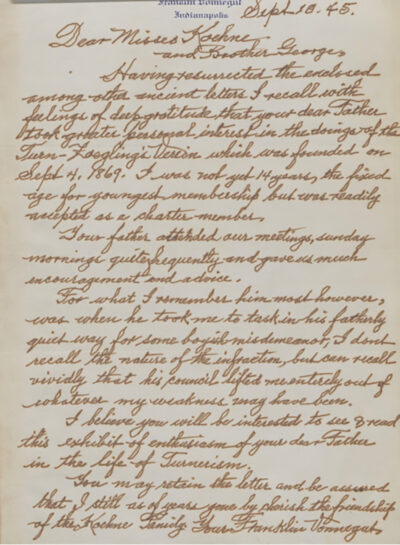 Franklin Vonnegut
Indianapolis
Sept 13. 45.
Dear Misses Koehne
and Brother George,
Having resurrected the enclosed
among other ancient letters I recall with
feelings of deep gratitude that your dear Father
took greater personal interest in the doings of the
Turn-Zoegling's Verein which was founded on
Sept 4, 1869. I was not yet 14 years, the fixed
age for youngest membership but was readily
accepted as a charter member.
Your father attended our meetings, sunday
mornings quite frequently and gave us much
encouragement and advice.
For what I remember him most however,
was when he took me to task in his fatherly
quiet way for some boyish misdemeanor, I dont
recall the nature of the infraction, but can recall
vividly that his council lifted me entirely out of
whatever my weakness may have been.
I believe you will be interested to see & read
this exhibit of enthusiasm of your dear Father
in the life of Turnerism.
You may retain the letter and be assured
that I still as of years gone by cherish the friendship
of the Koehne Family. Your Franklin Vonnegut